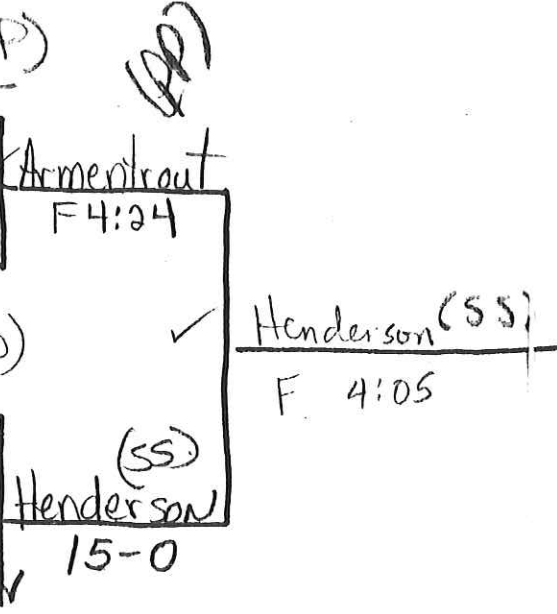 (PP)
Armentrout
F 4:24
Henderson (SS)
F 4:05
(SS)
Henderson
15-0